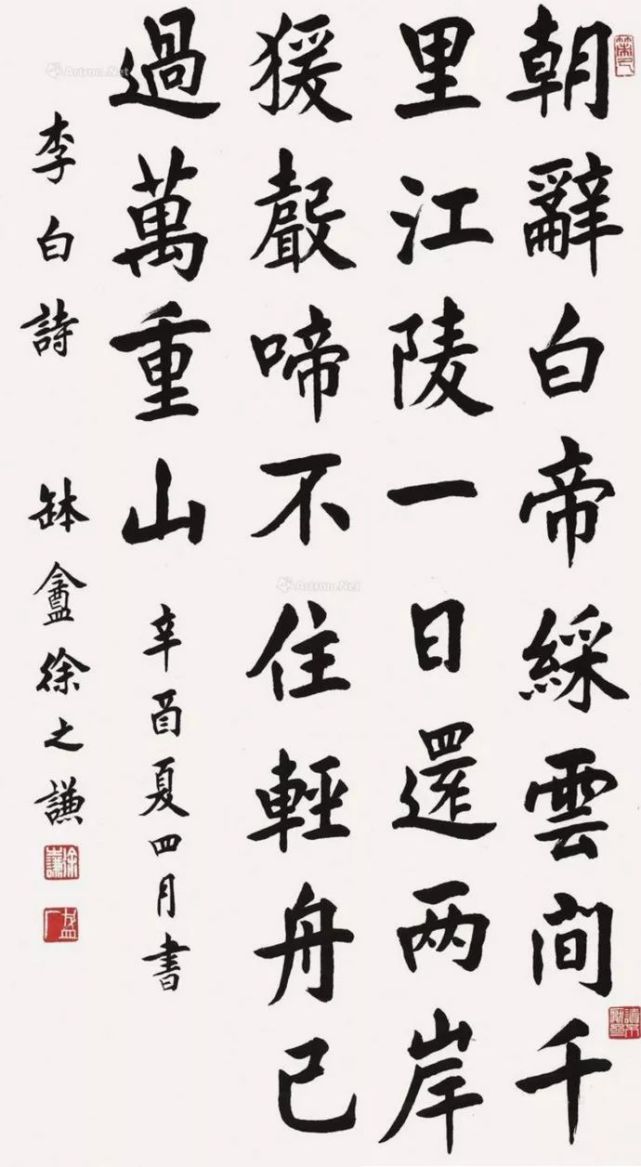 朝辭白帝綵雲間千
里江陵一日還两岸
猨聲啼不住輕舟已
過萬重山
辛酉夏四月書
李白詩
缽盦徐之謙
Artron.Net
Artron.Net